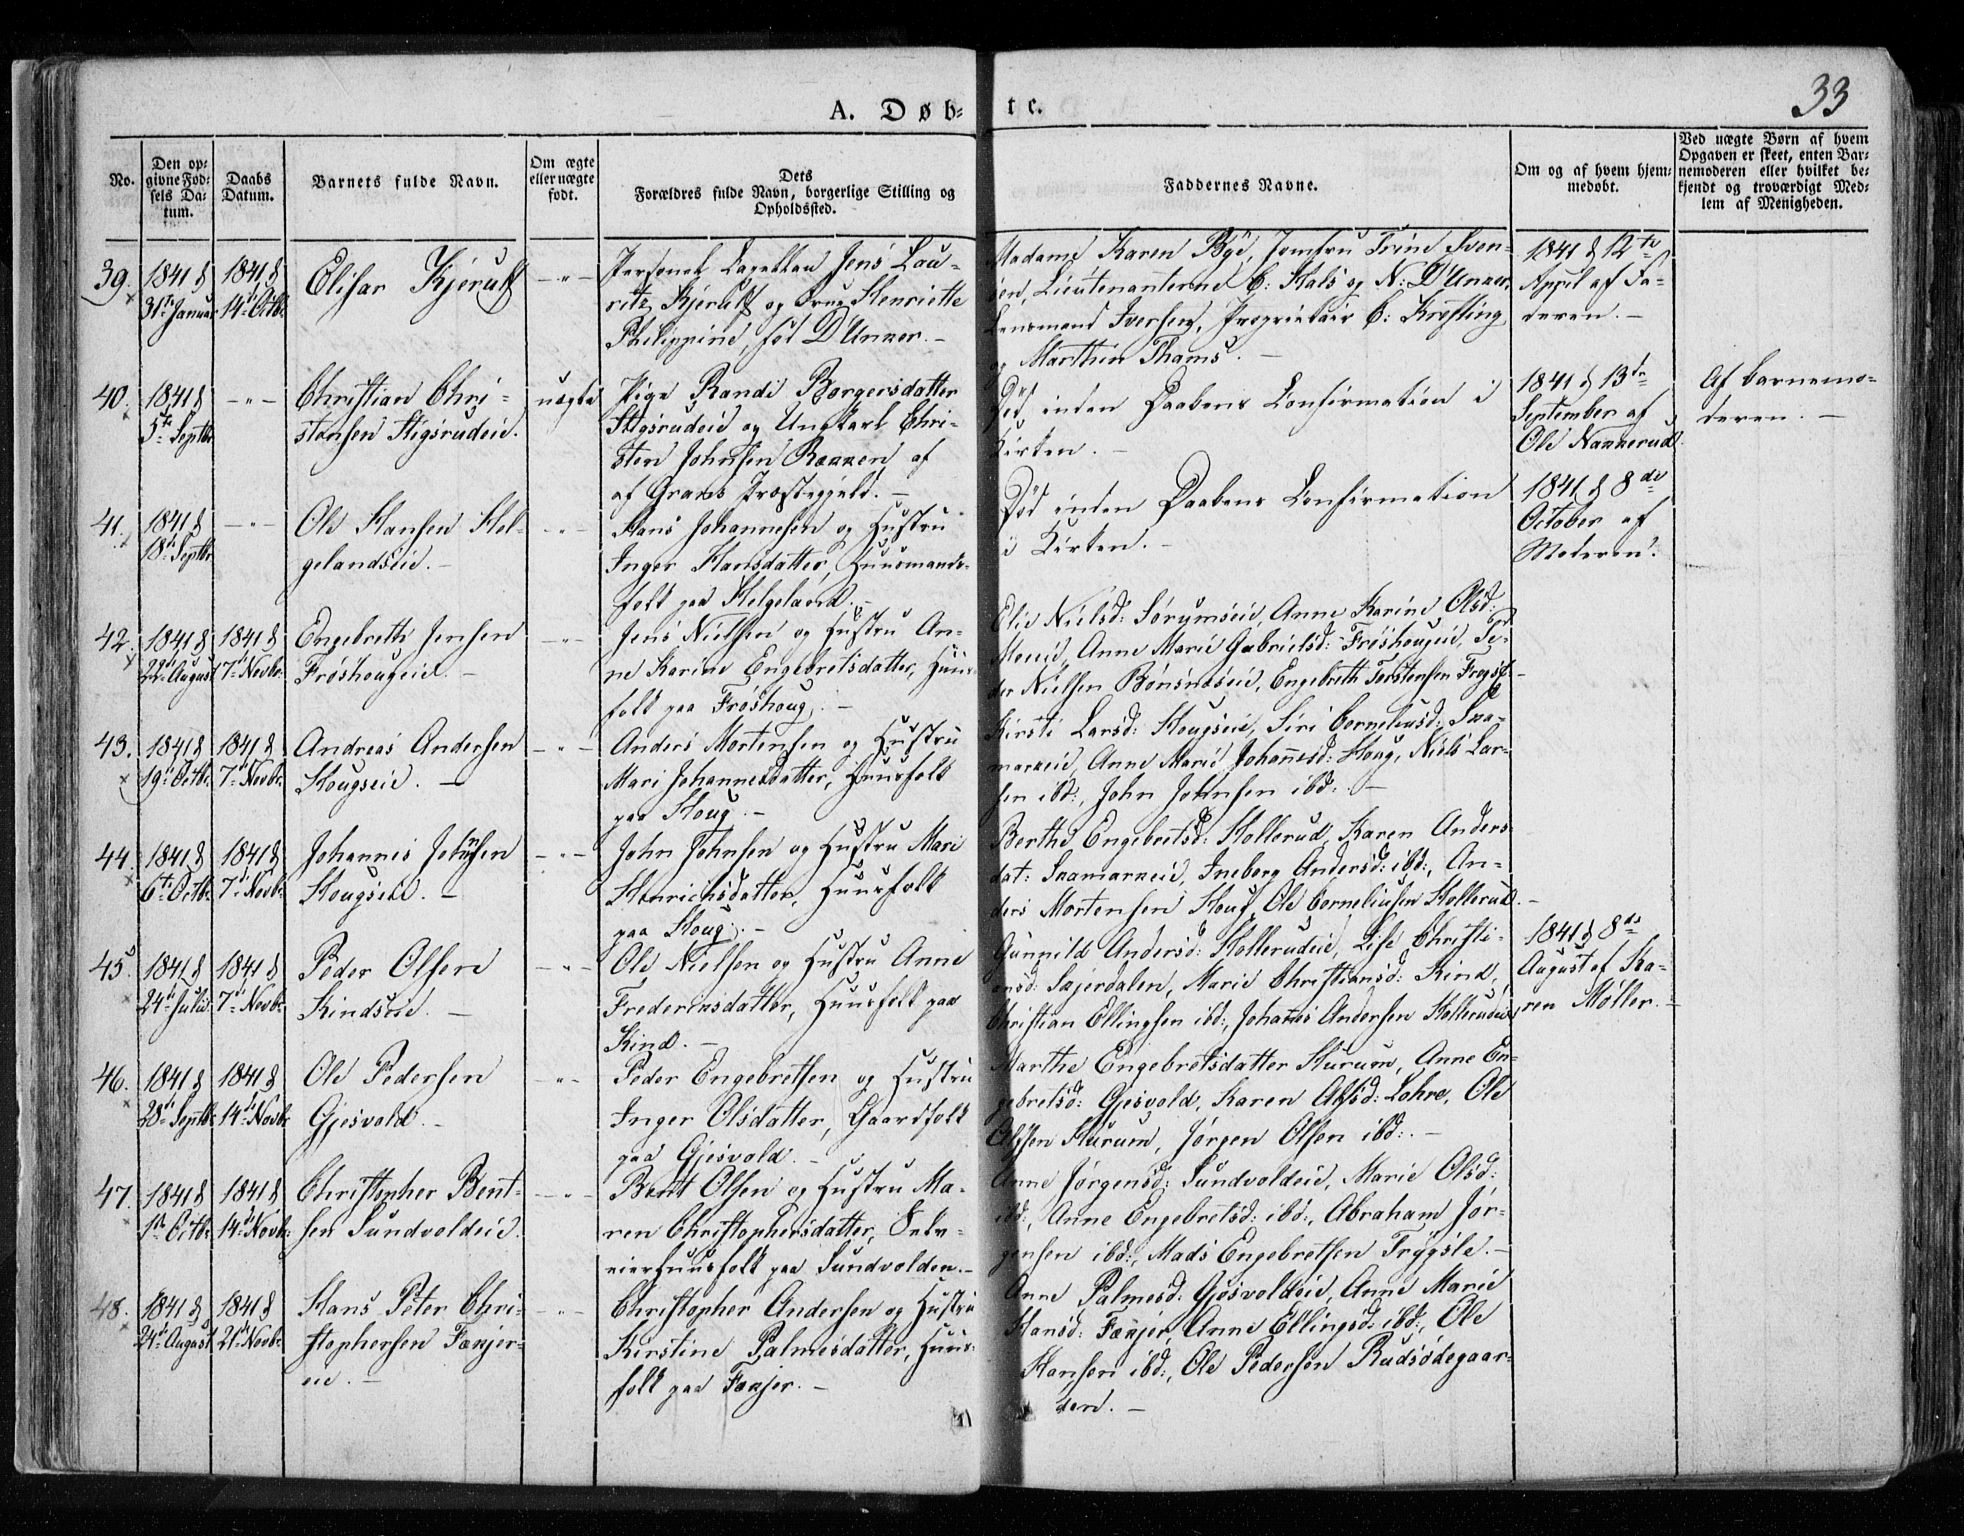 33
A. Døb-
te.
No.
Den op-
givne Fød-
sels Da-
tum.
Daabs
Datum.
Barnets fulde Navn.
Om ægte
eller uægte
født.
Dets
Forældres fulde Navn, borgerlige Stilling og
Opholdssted.
Faddernes Navne.
Om og af hvem hjem-
medøbt.
Ved uægte Børn af hvem
Opgaven er skeet, enten Bar-
nemoderen eller hvilket be-
kjendt og troværdigt Med-
lem af Menigheden.
39.
1841 d
31te Januar
1841 d
14de Octbr
Elisar Kjerulf
- " -
Personel Capellan Jens Lau-
ritz Kjerulf og Frue Henriette
Philippine, fød D'Unker. -
Madame Karen Bye, Jomfru Trine Sven-
sen, Lieutenanterne C: Hals og N: D'Unker,
Lensmand Iversen, Proprietair C: Kiøsting
og Marthin Thams. -
1841 d 12te
April af Fa-
deren. -
40.
1841 d
5te Septbr
- " -
Christian Chri-
stensen Stigsrudeie.
uægte
Pige Randi Borgersdatter
Stigsrudeie og Ungkarl Chri-
sten Johnsen Rækken af
af Grans Præstegjeld. -
Død inden Daabens Confirmation i
Kirken. -
1841 d 13de
September af
Ole Nakkerud.
Af barnemo-
deren. -
41.
1841 d
18de Septbr
- " -
Ole Hansen Hel-
gelandseie. -
- " -
Hans Johannesen og Hustru
Inger Hansdatter, Huusmands-
folk paa Helgeland. -
Død inden Daabens Confirmation
i Kirken. -
1841 d 8de
October af
Moderen.
42.
1841 d
22de August
1841 d
7de Novbr
Engebreth Jensen
Frøshougeie. -
- " -
Jens Nielsen og Hustru An-
ne Karine Engebretsdatter, Huus-
folk paa Frøshoug. -
Elie Nielsd: Sørumseie, Anne Karine Olsd:
Moeeie, Anne Marie Gabrielsd: Frøshougeie, Pe-
der Nielsen Bønsnæseie, Engebreth Torstensen
43.
1841 d
19de Octbr
1841 d
7de Novbr
Andreas Andersen
Hougseie. -
- " -
Anders Mortensen og Hustru
Mari Johannesdatter, Huusfolk
paa Houg. -
Kirsti Larsd: Hougseie, Siri Corneliusd: Sna-
markeie, Anne Marie Johannesd: Houg, Niels Lar-
sen ibd:, John Johnsen ibd: -
44.
1841 d
6te Octbr
1841 d
7de Novbr
Johannes Johnsen
Hougseie. -
- " -
John Johnsen og Hustru Mari
Henrichsdatter, Huusfolk
paa Houg. -
Berthe Engebretsd: Hollerud, Karen Anders-
dat: Snamarkeie, Ingeborg Andersd: ibd:, An-
ders Mortensen Houg, Ole Corneliusen Hollerud. -
45.
1841 d
24de Julii
1841 d
7de Novbr
Peder Olsen
Kindseie. -
- " -
Ole Nielsen og Hustru Anne
Frederiksdatter, Huusfolk paa
Kind. -
Gunnild Andersd: Hollerudeie, Lise Christi-
ansd: Sajerdalen, Marie Christiansd: Kind,
Christian Ellingsen ibd:, Johannes Andersen Hollerudeie,
1841 d 8de
August af Ka-
ren Møller. -
46.
1841 d
28de Septbr
1841 d
14de Novbr
Ole Pedersen
Gjesvold. -
- " -
Peder Engebretsen og Hustru
Inger Olsdatter, Gaardfolk
paa Gjesvold. -
Marthe Engebretsdatter Hurum, Anne En-
gebretsd: Gjesvold, Karen Olsd: Lohre, Ole
Olsen Hurum, Jørgen Olsen ibd: -
47.
1841 d
1ste Octbr
1841 d
14de Novbr
Christopher Bent-
sen Sundvoldeie.
- " -
Bent Olsen og Hustru Ma-
ren Christophersdatter,
huusfolk paa Sundvolden. -
Anne Jørgensd: Sundvoldeie, Marie Olsd:
ibd:, Anne Engebretsd: ibd:, Abraham Jør-
gensen ibd:, Mads Engebretsen Frøgsle. -
48.
1841 d
24de August
1841 d
21de Novbr
Hans Peter Chri-
stophersen Fækjer-
eie. -
- " -
Christopher Andersen og Hustru
Kirstine Palmesdatter, Huus-
folk paa Fækjer. -
Anne Palmesd: Gjesvoldeie, Anne Marie
Hansd: Fækjer, Anne Ellingsd: ibd:, Ole
Hansen ibd:, Ole Pedersen Rudsødegaar-
den. -